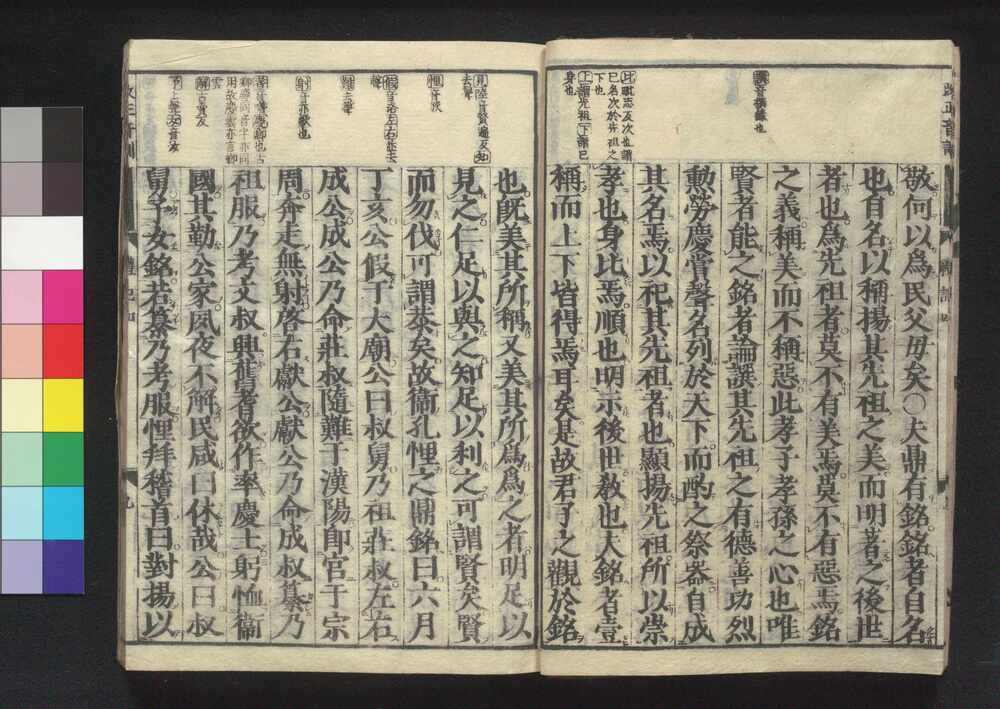 敬何以爲民父母矣○夫鼎有銘銘者自名
也自名以稱揚其先祖之美而明著之後世
者也爲先祖者莫不有美焉莫不有惡焉銘
之義稱美而不稱惡此孝子孝孫之心也唯
賢者能之銘者論譔其先祖之有德善功烈
勲勞慶賞聲名列於天下而酌之祭器自成
其名焉以祀其先祖者也顯揚先祖所以崇
孝也身比焉順也明示後世敎也夫銘者壹
稱而上下皆得焉耳矣是故君子之觀於銘
也旣美其所稱又美其所爲爲之者明足以
見之仁足以與之知足以利之可謂賢矣賢
而勿伐可謂恭矣故衞孔悝之鼎銘曰六月
丁亥公假于大廟公曰叔舅乃祖莊叔左右
成公成公乃命莊叔隨難于漢陽卽官于宗
周奔走無射啓右獻公獻公乃命成叔纂乃
祖服乃考文叔興舊耆欲作率慶士躬恤衞
國其勤公家夙夜不解民咸曰休哉公曰叔
舅予女銘若纂乃考服悝拜稽首曰對揚以
譔音撰錄也
比
次也謂
已名次於先祖之
下也
上謂先祖下謂已
身也
見
音賢遍反知
去聲
悝音灰
假音格左右並去
聲
難去聲
射音亦厭也
禮記四
九